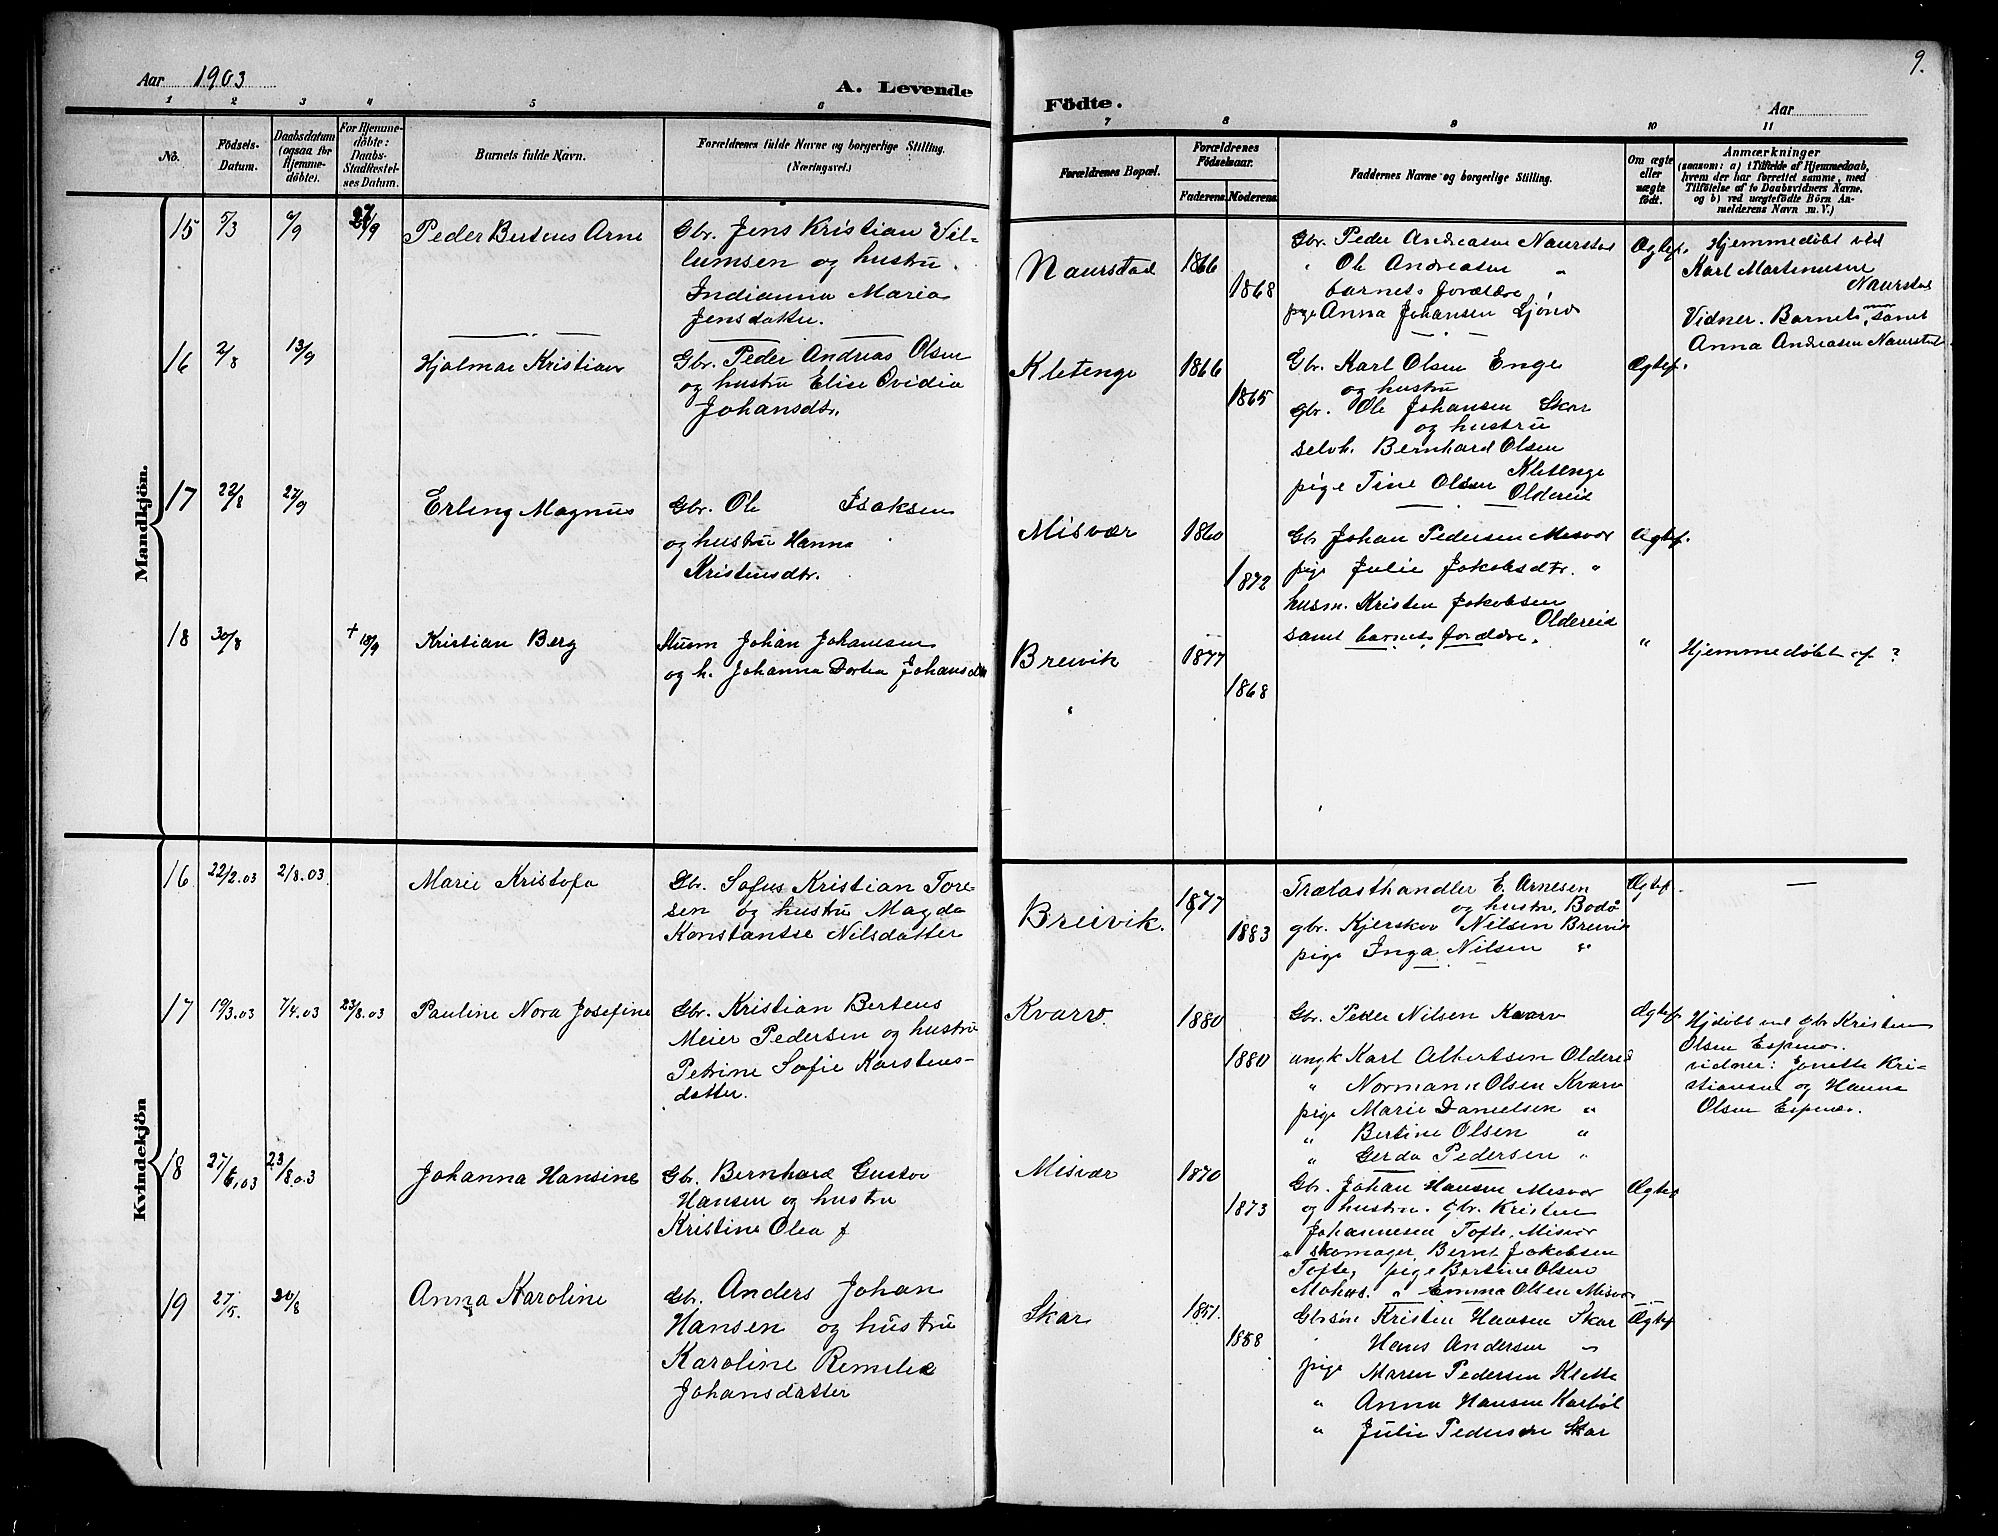 9.
Aar 1903
A. Levende
Födte.
Aar
1 2 3 4 5 6
7 8 9 10 11
No.
Födsels-
Datum.
Daabsdatum
(ogsaa for
Hjemme-
döbte).
For Hjemme-
döbte:
Daabs-
Stadfæstel-
ses Datum.
Barnets fulde Navn.
Forældrenes fulde Navne og borgerlige Stilling.
(Næringsvei.)
Forældrenes Bopæl.
Forældrenes
Födselsaar.
Faderens. Moderens.
Faddernes Navne og borgerlige Stilling.
Om ægte
eller
uægte
födt.
Anmærkninger
(saasom: a) i Tilfælde af Hjemmedaab,
hvem der har forrettet samme, med
Tilföielse af to Daabsvidners Navne.
og b) ved uægtefödte Börn An-
melderens Navn m. V.)
Mandkjön.
15 5/3 6/9 27/9 Peder Berteus Arne
Gbr. Jens Kristian Vil-
lumsen og hustru
Indianna Maria
Jensdatter.
Naurstad 1866
1868
Gbr. Peder Andreasen Naurstad
" Ole Andreasen "
barnets forældre,
pige Anna Johansen Ljønes
Ægtef.
Hjemmedøbt ved
Karl Martinusen
Naurstad
Vidner. Barnets mor, samt
Anna Andreasen Naurstad.
16 2/8 13/9 Hjalmar Kristian
Gbr. Peder Andreas Olsen
og hustru Elise Ovidia
Johansdtr.
Kletenge 1866
1865
Gbr. Karl Olsen Enge
og hustru
Gbr. Ole Johansen Skar
og hustru
selvh. Bernhard Olsen
Kletenge
pige Tine Olsen Oldereid
Ægtef.
17 22/8 27/9 Erling Magnus
Gbr. Ole Isaksen
og hustru Hanna
Kristensdtr.
Misvær 1860
1872
Gb. Johan Pedersen Misvær
pige Julie Jakobsdtr. "
husm. Kristen Jakobsen
Oldereid
samt barnets forældre.
Ægtef.
18 30/8 † 18/9 Kristian Berg
Husm Johan Johansen
og h. Johanna Dortea Johansdtr
Breivik 1877
1868
"
"
Hjemmedøbt af ?
Kvindekjön
16 22/2.03 2/8.03 Marie Kristofa
Gbr. Sofus Kristian Tore-
sen og hustru Magda
Konstantse Nilsdatter
Breivik. 1877
1883
Trælasthandler E. Arnesen
og hustru, Bodø
gbr. Kjerskov Nilsen Breivik
pige Inga Nilsen "
Ægtef. —
17 19/3.03 7/4.03 23/8.03 Pauline Nora Josefine
Gbr. Kristian Berteus
Meier Pedersen og hustru
Petrine Sofie Karstens-
datter.
Kvarv. 1880
1880
Gbr. Peder Nilsen Kvarv
ungk Karl Albertsen Oldereid
" Normann Olsen Kvarv
pige Marie Danielsen "
" Bertine Olsen "
" Gerda Pedersen "
Ægtef.
Hjdøbt ved gbr Kristen
Olsen Espenes.
vidner: Jonette Kri-
stiansen og Hanna
Olsen Espenes.
18 27/6.03 23/8.03 Johanna Hansine
Gbr. Bernhard Gustav
Hansen og hustru
Kristine Olea f
Misvær 1870
1873
Gbr. Johan Hansen Misvær
og hustru. gbr. Kristen
Johannesen Tofte, Misvær
skomager, Bernt Jakobsen
Tofte, pige Bertine Olsen
Mohus. " Emma Olsen Misvær
Ægtef
19 27/5. 30/8 Anna Karoline
Gbr. Anders Johan
Hansen og hustru
Karoline Remilie
Johansdatter
Skar 1851.
1858
Gbrsøn Kristen Hansen Skar
" Hans Andersen "
pige Maren Pedersen Klette
" Anna Hansen Karbøl
" Julie Pedersen Skar
Ægtef